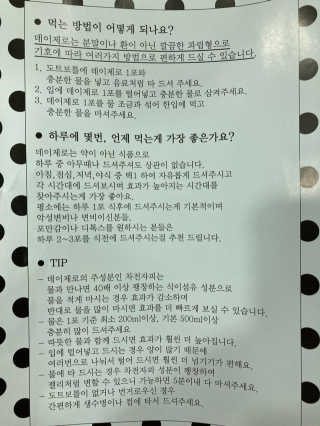 ● 먹는 방법이 어떻게 되나요?
데이제로는 분말이나 환이 아닌 깔끔한 과립형으로
기호에 따라 여러가지 방법으로 편하게 드실 수 있습니다.
1. 도트보틀에 데이제로 1포와
충분한 물을 넣고 음료처럼 타 드셔 주세요.
2. 입에 데이제로 1포를 털어넣고 충분한 물로 삼켜주세요.
3. 데이제로 1포를 물 조금과 섞어 한입에 먹고
충분한 물을 마셔주세요.
● 하루에 몇번, 언제 먹는게 가장 좋은가요?
데이제로는 약이 아닌 식품으로
하루 중 아무때나 드셔주셔도 상관이 없습니다.
아침,점심,저녁,야식 중 택1 하여 자유롭게 드셔주시고
각 시간대에 드셔보시며 효과가 높아지는 시간대를
찾아주시는게 가장 좋아요.
평소에는 하루 1포 식후에 드셔주시는게 기본적이며
악성변비나 변비이신분들,
포만감이나 디톡스를 원하시는 분들은
하루 2~3포를 식전에 드셔주시는걸 추천 드립니다.
● TIP
- 데이제로의 주성분인 차전자피는
물과 만나면 40배 이상 팽창하는 식이섬유 성분으로
물을 적게 마시는 경우 효과가 감소하며
반대로 물을 많이 마시면 효과를 더 빠르게 보실 수 있습니다.
- 물은 1포 기준 최소 200ml이상, 기본 500ml이상
충분히 많이 드셔주세요
- 따뜻한 물과 함께 드시면 효과가 훨씬 더 높아집니다.
- 입에 털어넣고 드시는 경우 양이 많기 때문에
여러번으로 나눠서 털어 드시면 훨씬 더 넘기기가 편해요.
- 물에 타 드시는 경우 차전자피의 성분이 팽창하며
젤리처럼 변할 수 있으니 가능하면 5분이내 다 마셔주세요.
- 도트보틀이 없거나 번거로우신 경우
간편하게 생수병이나 컵에 타서 드셔주세요.